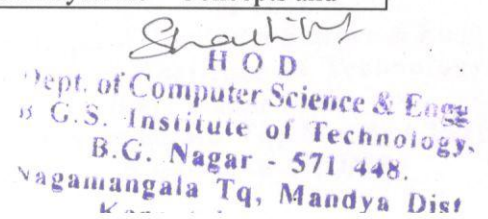 Concepts and
H O D
Dept. of Computer Science & Engg
G.S. Institute of Technology,
B.G. Nagar - 571 448.
Nagamangala Tq, Mandya Dist